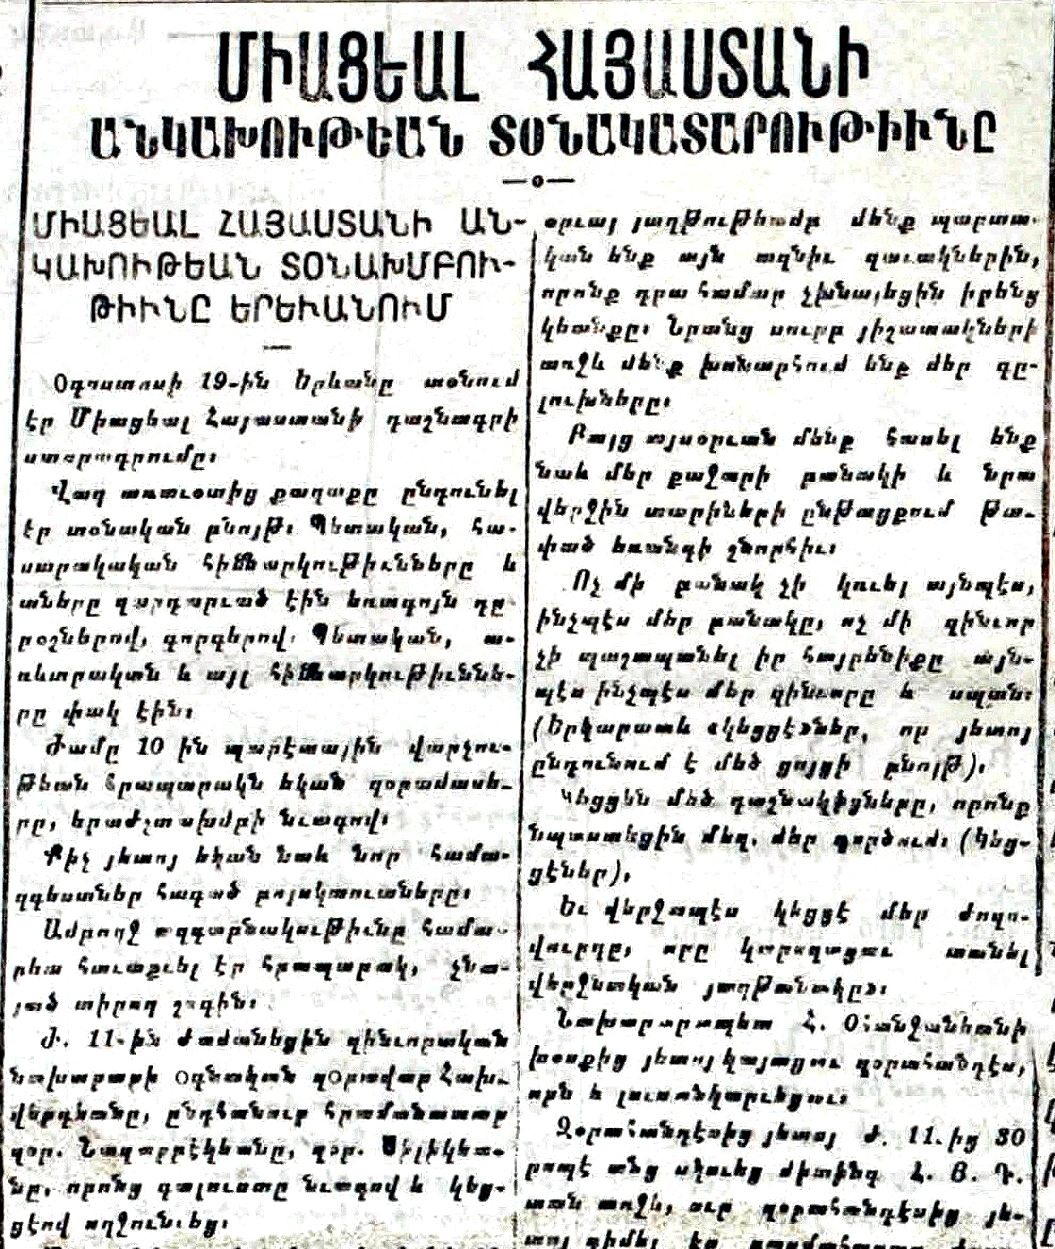 ՄԻԱՑԵԱԼ ՀԱՅԱՍՏԱՆԻ
ԱՆԿԱԽՈՒԹԵԱՆ ՏՕՆԱԿԱՏԱՐՈՒԹԻՒՆԸ
ՄԻԱՑԵԱԼ ՀԱՅԱՍՏԱՆԻ ԱՆ-
ԿԱԽՈՒԹԵԱՆ ՏՕՆԱԽՄԲՈՒ-
ԹԻՒՆԸ ԵՐԵՒԱՆՈՒՄ
Օգոստոսի 19-ին Երևանը տօնում
էր Միացեալ Հայաստանի դաշնագրի
ստորագրումը։
Վաղ առաւօտից քաղաքը ընդունել
էր տօնական բնոյթ։ Պետական, հա-
սարակական հիմնարկութիւնները և
տները զարդարւած էին եռագոյն դը-
րօշներով, գորգերով։ Պետական, ա-
ռևտրական և այլ հիմնարկութիւննե-
րը փակ էին։
Ժամը 10 ին պարէտային վարչու-
թեան հրապարակն եկան զօրամասե-
րը, երաժշտախմբի նւագով։
Քիչ յետոյ եկան նաև նոր համա-
զգեստներ հագած բոյսկաուտները։
Ամբողջ ազգաբնակութիւնը համա-
րեա հաւաքւել էր հրապարակ, չնա-
յած տիրող շոգին։
Ժ. 11-ին ժամանեցին զինւորական
նախարարի օգնական զօրավար Հախ-
վերդեանը, ընդհանուր հրամանատար
զօր. Նազարբէկեանը, զօր. Սիլիկեա-
նը, որոնց գալուստը նւագով և կեց-
ցէով ողջունւեց։
օրւայ յաղթութեամբ մենք պարտա-
կան ենք այն ազնիւ զաւակներին,
որոնք դրա համար չխնայեցին իրենց
կեանքը։ Նրանց սուրբ յիշատակների
առջև մենք խոնարհում ենք մեր գը-
լուխները։
Բայց այսօրւան մենք հասել ենք
նաև մեր քաջարի բանակի և նրա
վերջին տարիների ընթացքում թա-
փած եռանդի շնորհիւ։
Ոչ մի բանակ չի կռւել այնպէս,
ինչպէս մեր բանակը, ոչ մի զինւոր
չի պաշտպանել իր հայրենիքը այն-
պէս ինչպէս մեր զինւորը և սպան։
(Երկարատև «կեցցէ»ներ, որ յետոյ
ընդունում է մեծ ցոյցի բնոյթ)։
Կեցցեն մեծ դաշնակիցները, որոնք
նպաստեցին մեզ, մեր գործում։ (Կեց-
ցէներ)։
Եւ վերջապէս կեցցէ մեր ժողո-
վուրդը, որը կարողացաւ տանել
վերջնական յաղթանակը»։
Նախարարապետ Հ. Օհանջանեանի
խօսքից յետոյ կայացաւ զօրահանդէս,
որն և լուսանկարւեցաւ։
Զօրահանդէսից յետոյ Ժ. 11.ից 30
րոպէ անց սկսւեց միտինգ Հ. Յ. Դ.
տան առջև, ուր զօրահանդէսից յե-